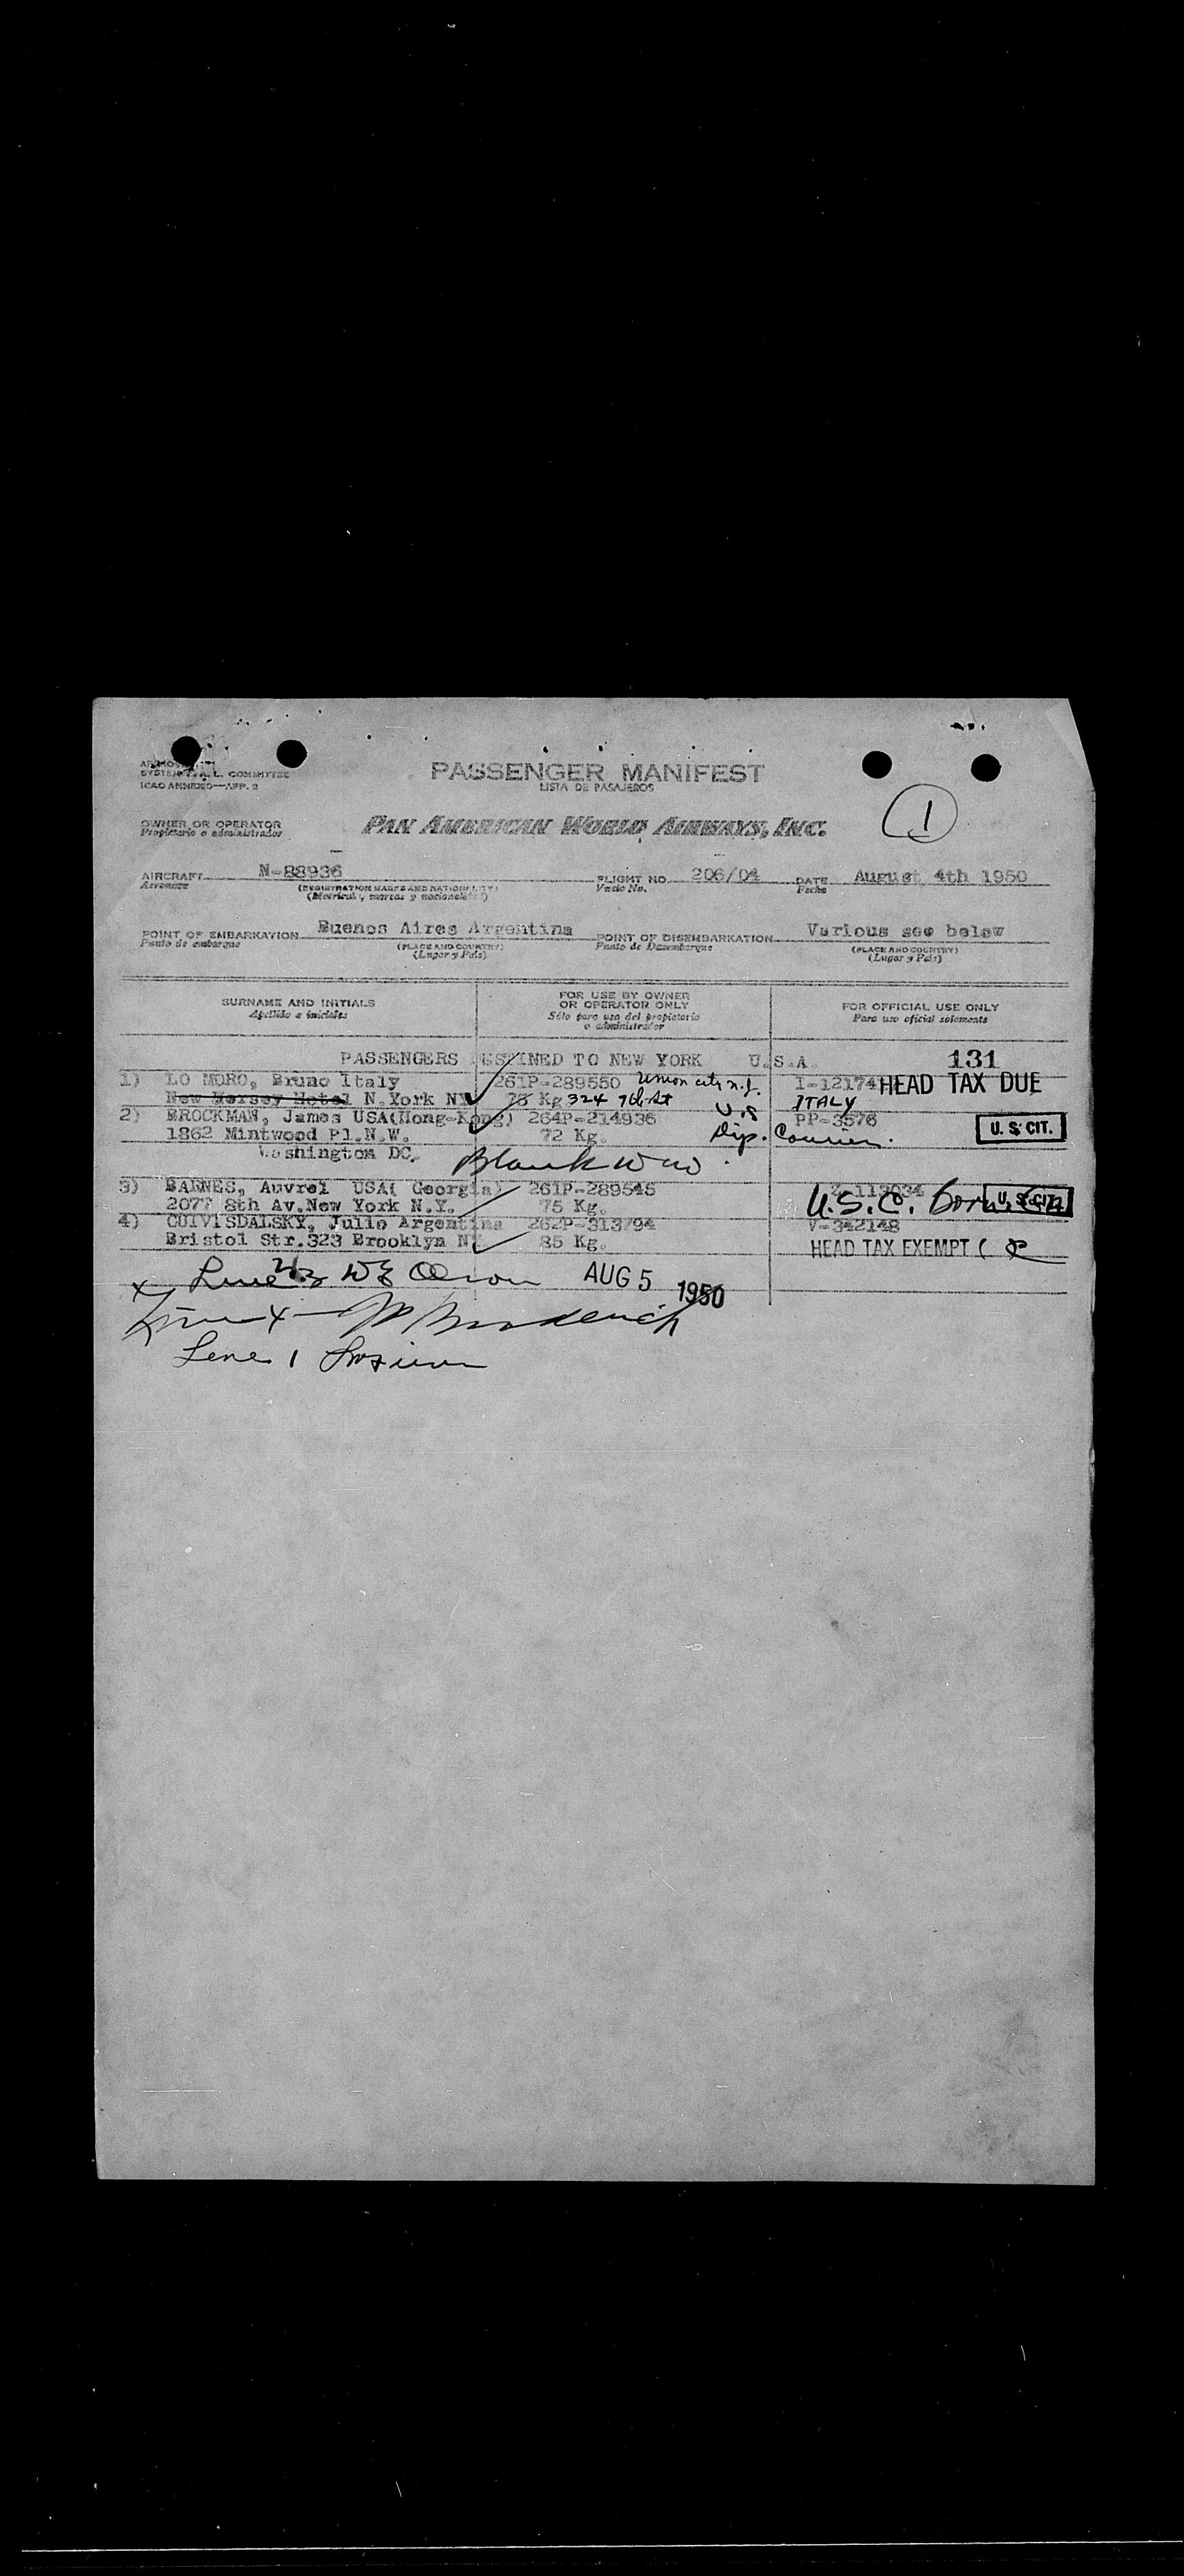 PASSENGER MANIFEST
LISTA DE PASAJEROS
COMMITTEE
1
OWNER OR OPERATOR
Propietario o administrador
PAN AMERICAN WORLD AIRWAYS, INC.
AIRCRAFT N-88936 FLIGHT NO. 206/04 DATE August 4th 1950
Aeronave (REGISTRATION MARKS AND NATIONALITY) Fecha
POINT OF EMBARKATION Buenos Aires Argentina POINT OF DISEMBARKATION Various see below
Punto de embarque (PLACE AND COUNTRY) Punto de Desembarque (PLACE AND COUNTRY)
(Lugar y País) (Lugar y País)
SURNAME AND INITIALS FOR USE BY OWNER OR OPERATOR ONLY FOR OFFICIAL USE ONLY
Apellido e iniciales Sólo para uso del propietario o administrador Para uso oficial solamente
PASSENGERS DESTINED TO NEW YORK U.S.A. 131
1) LO MORO, Bruno Italy 261P-289550 Union City N.J. I-12174 HEAD TAX DUE
New Yersey Hotel N.York NY 75 Kg 324 7th St ITALY
2) BROCKMAN, James USA(Hong-Kong) 264P-214936 U.S PP-3576
1862 Mintwood Pl.N.W. 72 Kg. Dip. Courier. U. S. CIT.
Washington DC.
3) BARNES, Auvrel USA( Georgia) 261P-289545
2077 8th Av.New York N.Y. 75 Kg. U.S.C. U. S. CIT.
4) Julio Argentina 262P-313794 V-342148
Bristol Str.323 Brooklyn NY 85 Kg. HEAD TAX EXEMPT (
Line AUG 5 1950
Line 1